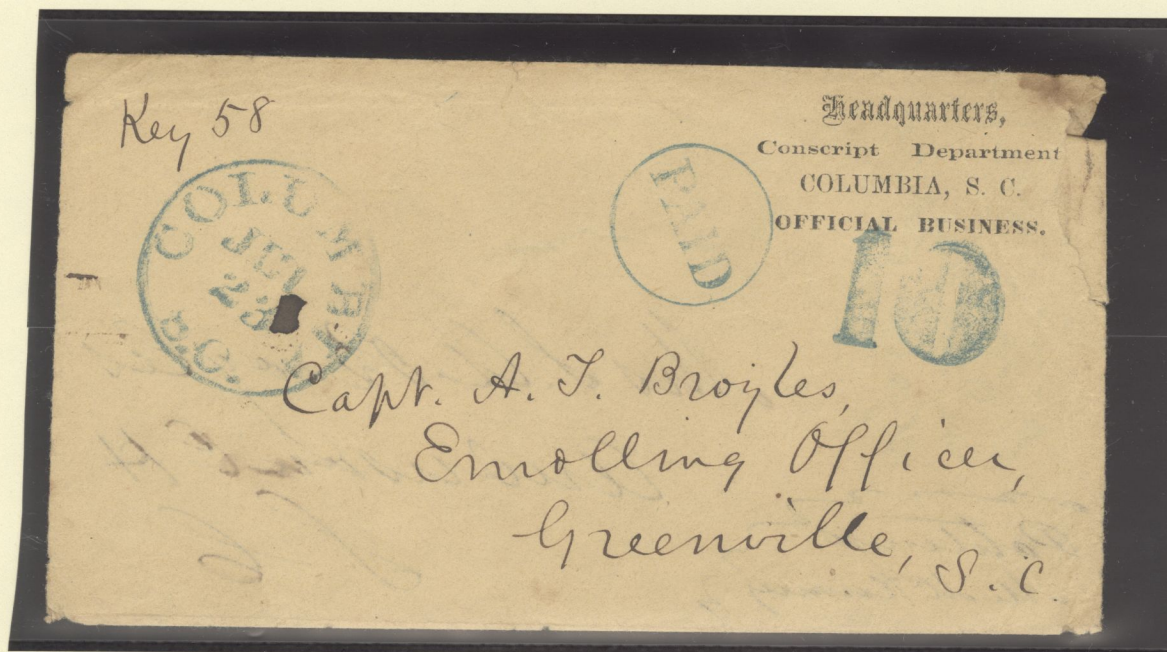 Key 58
Headquarters,
Conscript Department
COLUMBIA, S. C.
OFFICIAL BUSINESS.
COLUMBIA
23
S.C.
PAID
10
Capt. A. T. Broyles,
Enrolling Officer,
Greenville, S. C.